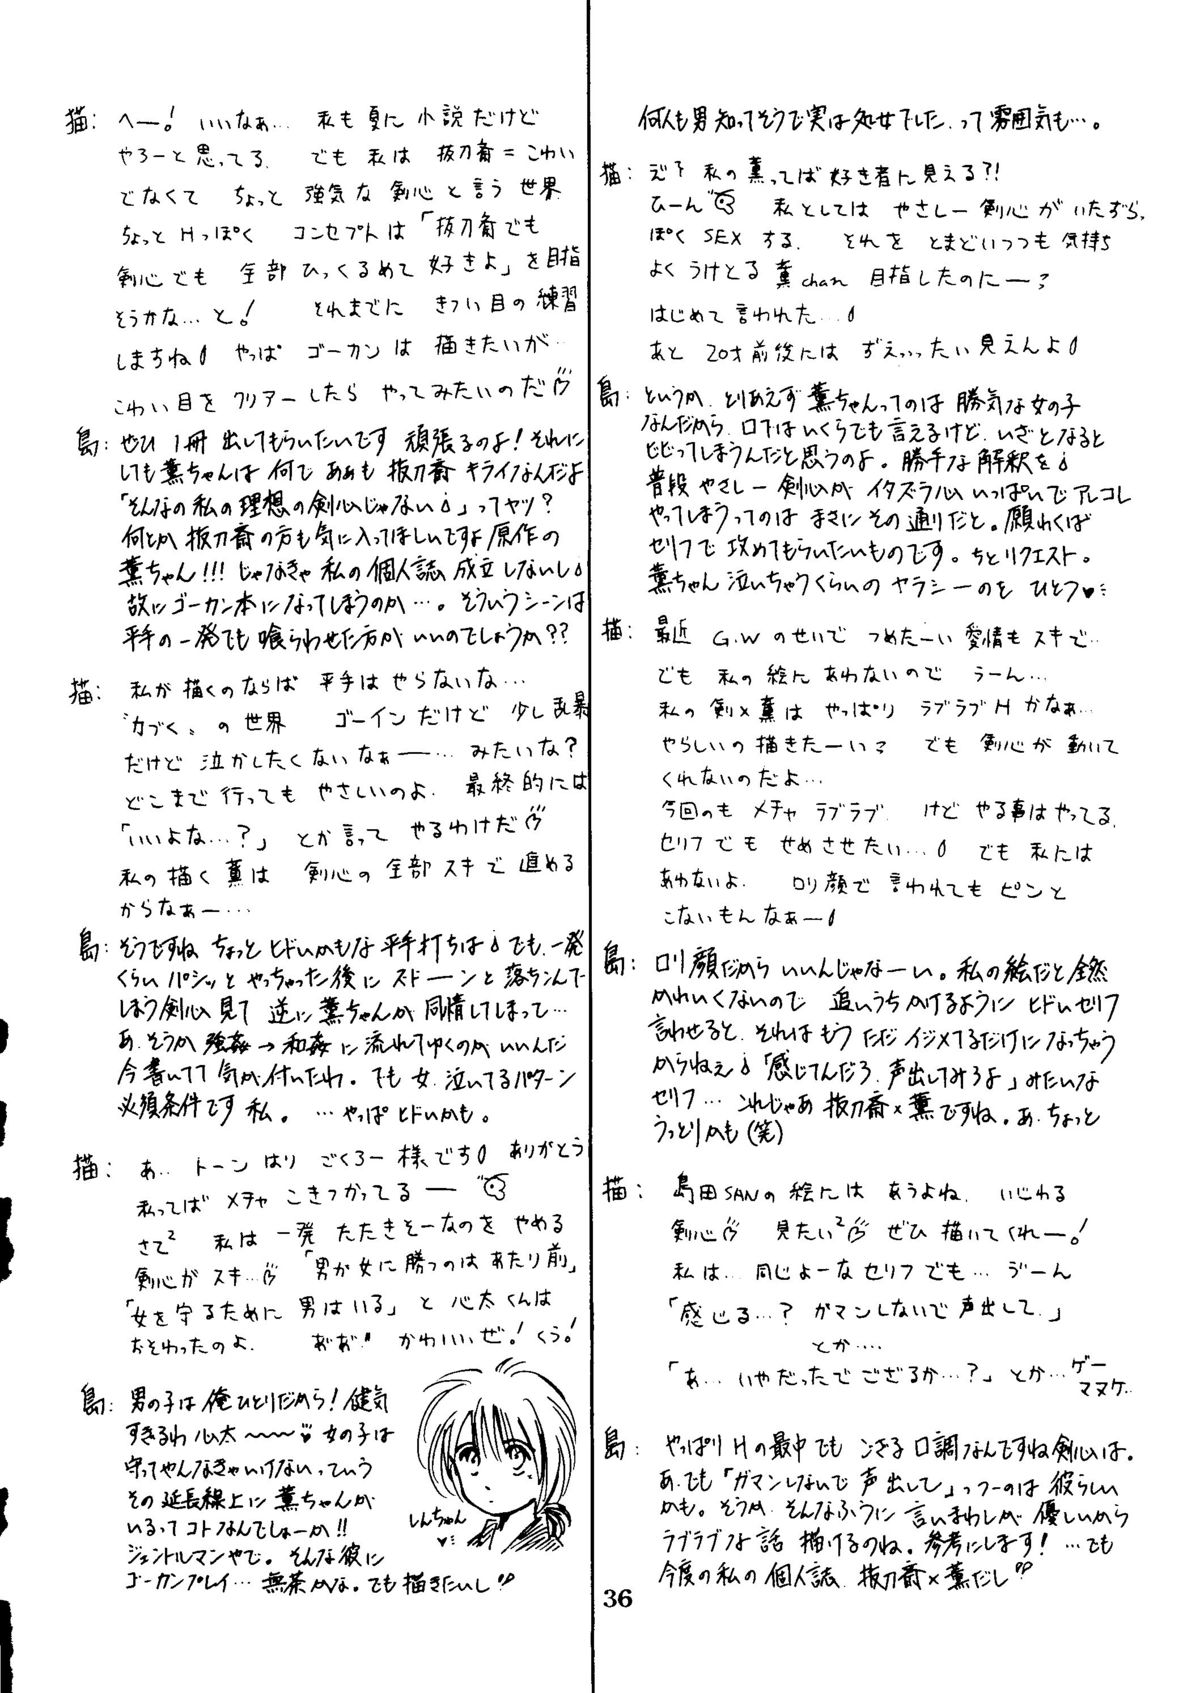 猫: へー! いいなぁ… 私も夏に小説だけど
やろーと思ってる. でも私は 抜刀斎=こわい
でなくて ちょっと 強気な 剣心と言う世界.
ちょっとHっぽく コンセプトは「抜刀斎でも
剣心でも 全部ひっくるめて好きよ」を目指
そうかな…と! それまでに きつい目の練習
しますね やっぱ ゴーカンは 描きたいが…
こわい目をクリアーしたら やってみたいのだ
島: ぜひ1冊出してもらいたいです 頑張るのよ!それに
しても薫ちゃんは何で ああも 抜刀斎 キライなんだよ
「そんなの私の理想の剣心じゃない」ってヤツ?
何とか 抜刀斎の方も気に入ってほしいですよ原作の
薫ちゃん!!! じゃなきゃ私の個人誌 成立しないし
故にゴーカン本になってしまうのか…。そういうシーンは
平手の一発でも喰らわせた方がいいのでしょうか??
猫: 私が描くのならば 平手はやらないな…
〝力づく〟の世界 ゴーインだけど 少し乱暴
だけど 泣かしたくないなぁー… みたいな?
どこまで行っても やさしいのよ. 最終的には
「いいよな…?」とか言って やるわけだ
私の描く薫は 剣心の全部スキで進める
からなぁー…
島: そうですね ちょっとヒドいかもな 平手打ちは でも、一発
くらいパシッと やっちゃった後に ズドーンと落ちこんで
しまう剣心見て 逆に薫ちゃんが同情してしまって…
あ、そうか強姦→和姦に流れてゆくのがいいんだ
今書いてて気が付いたわ。でも女、泣いてるパターン
必須条件です私。…やっぱヒドいかも。
猫: あ… トーンはり ごくろー様です ありがとう
私ってば メチャ こきつかってるー
さて² 私は 一発 たたきそーなのを やめる
剣心がスキ… 「男が女に勝つのはあたり前」
「女を守るために男はいる」と心太くんは
おそわったのよ. かわいいぜ! くう!
島: 男の子は俺ひとりだから! 健気
すぎるわ心太〜〜〜 女の子は
守ってやんなきゃいけないっていう
その延長線上に薫ちゃんが
いるってコトなんでしょーか!!
ジェントルマンやで。そんな彼に
ゴーカンプレイ… 無茶かな。でも描きたいし
しんちゃん
何人も男知ってそうで実は処女でした、って雰囲気も…。
猫: え? 私の薫ってば好き者に見える?!
ひーん 私としては やさしー剣心がいたずら
ぽく SEXする. それを とまどいつつも 気持ち
よくうけとる 薫chan 目指したのにー?
はじめて言われた…
あと 20才前後には ずえっったい見えんよ
島: というか、とりあえず薫ちゃんってのは 勝気な女の子
なんだから、口ではいくらでも言えるけど、いざとなると
ビビってしまうんだと思うのよ。勝手な解釈を
普段やさしー剣心が イタズラ心いっぱいでアレコレ
やってしまうってのは まさにその通りだと。願わくば
セリフで攻めてもらいたいものです。ちとリクエスト。
薫ちゃん泣いちゃうくらいの ヤラシーのを ひとつ♥
猫: 最近 G.Wのせいで つめたーい愛情もスキで…
でも 私の絵にあわないので うーん…
私の剣×薫は やっぱり ラブラブHかなぁ…
やらしいの描きたーい? でも 剣心が動いて
くれないのだよ…
今回のも メチャ ラブラブ. けど やる事はやってる.
セリフでも せめさせたい… でも 私には
あわないよ. ロリ顔で 言われても ピンと
こないもんなぁー
島: ロリ顔だからいいんじゃなーい。私の絵だと全然
かわいくないので 追いうちかけるように ヒドいセリフ
言わせると、それはもう ただイジメてるだけになっちゃう
からねぇ 「感じてんだろ、声出してみろよ」みたいな
セリフ… これじゃあ 抜刀斎×薫ですね。あ、ちょっと
うっとりかも(笑)
猫: 島田SANの絵には あうよね. いじわる
剣心 見たい² ぜひ描いてくれー!
私は… 同じよーなセリフでも… うーん
「感じる…? ガマンしないで声出して.」
とか….
「あ… いやだったでござるか…?」とか… ゲー
マヌケ…
島: やっぱりHの最中でも ござる口調なんですね剣心は。
あ、でも「ガマンしないで声出して」っつーのは彼らしい
かも。そうか、そんなふうに言いまわしが 優しいから
ラブラブな話 描けるのね。参考にします! …でも
今度の私の個人誌、抜刀斎×薫だし
36